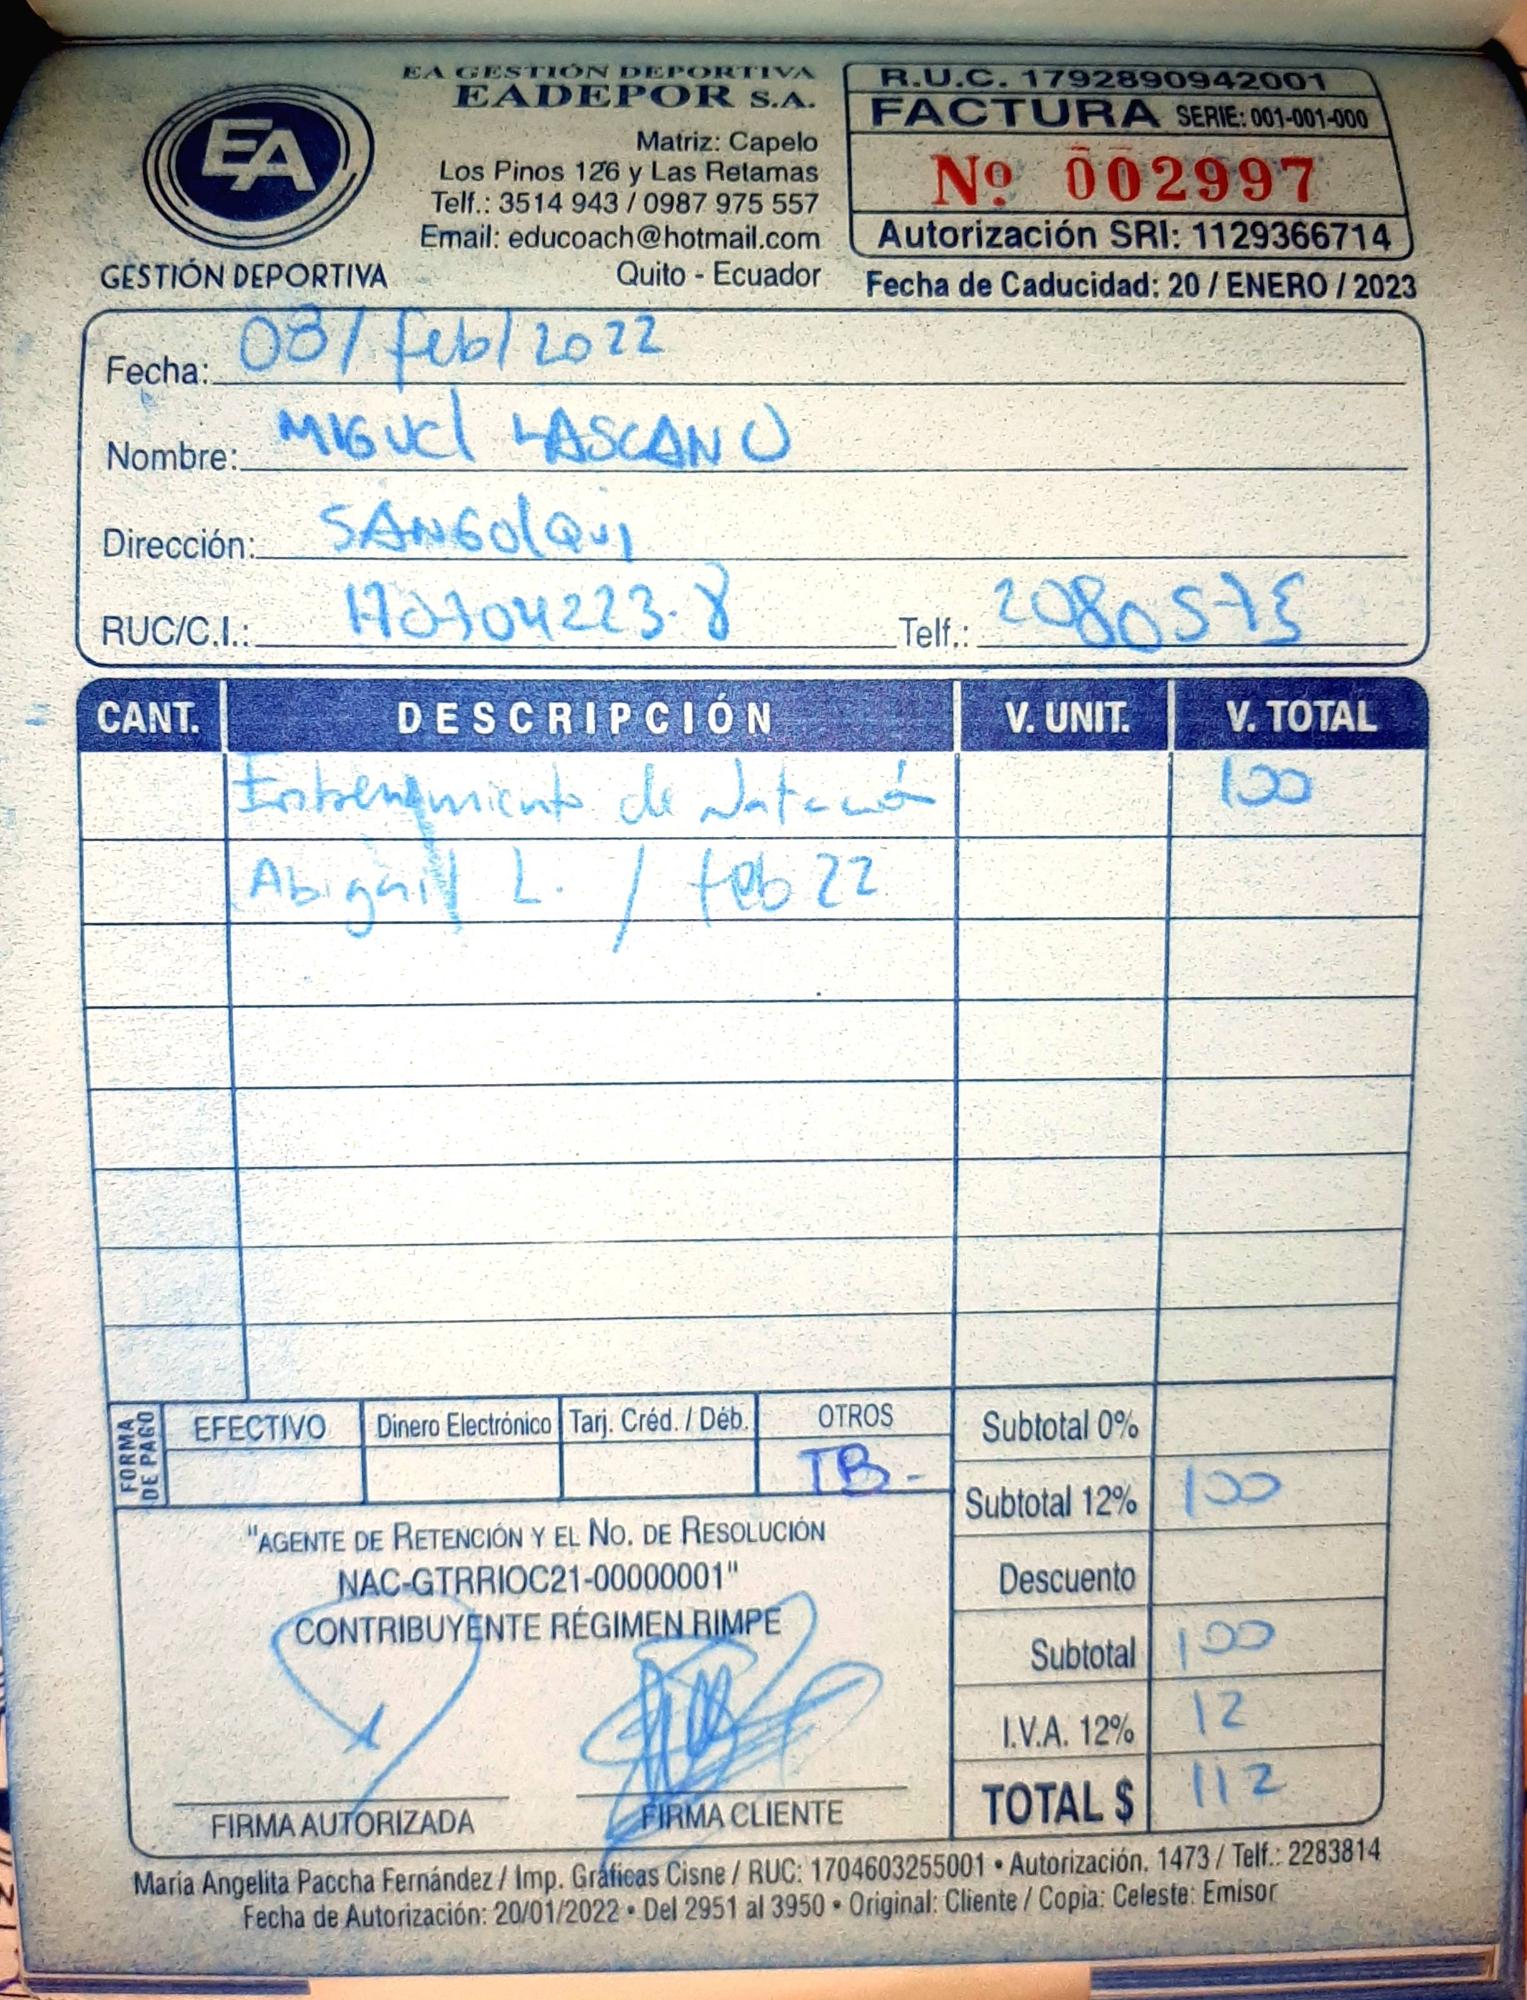 EA GESTIÓN DEPORTIVA
EADEPOR S.A.
Matriz: Capelo
Los Pinos 126 y Las Retamas
Telf.: 3514 943 / 0987 975 557
Email: educoach@hotmail.com
Quito - Ecuador
EA
GESTIÓN DEPORTIVA
R.U.C. 1792890942001
FACTURA SERIE: 001-001-000
Nº 002997
Autorización SRI: 1129366714
Fecha de Caducidad: 20 / ENERO / 2023
Fecha: 08/feb/2022
Nombre: MIGUEl LASCANO
Dirección: SANGOlQUI
RUC/C.I.: 170704223-8 Telf.: 2080575
CANT. DESCRIPCIÓN V. UNIT. V. TOTAL
Entrenamiento de Natación 100
Abigail L. / feb 22
FORMA DE PAGO EFECTIVO Dinero Electrónico Tarj. Créd. / Déb. OTROS
TB-
Subtotal 0%
Subtotal 12% 100
Descuento
Subtotal 100
I.V.A. 12% 12
TOTAL $ 112
"AGENTE DE RETENCIÓN Y EL NO. DE RESOLUCIÓN
NAC-GTRRIOC21-00000001"
CONTRIBUYENTE RÉGIMEN RIMPE
FIRMA AUTORIZADA FIRMA CLIENTE
María Angelita Paccha Fernández / Imp. Gráficas Cisne / RUC: 1704603255001 • Autorización. 1473 / Telf.: 2283814
Fecha de Autorización: 20/01/2022 • Del 2951 al 3950 • Original: Cliente / Copia: Celeste: Emisor